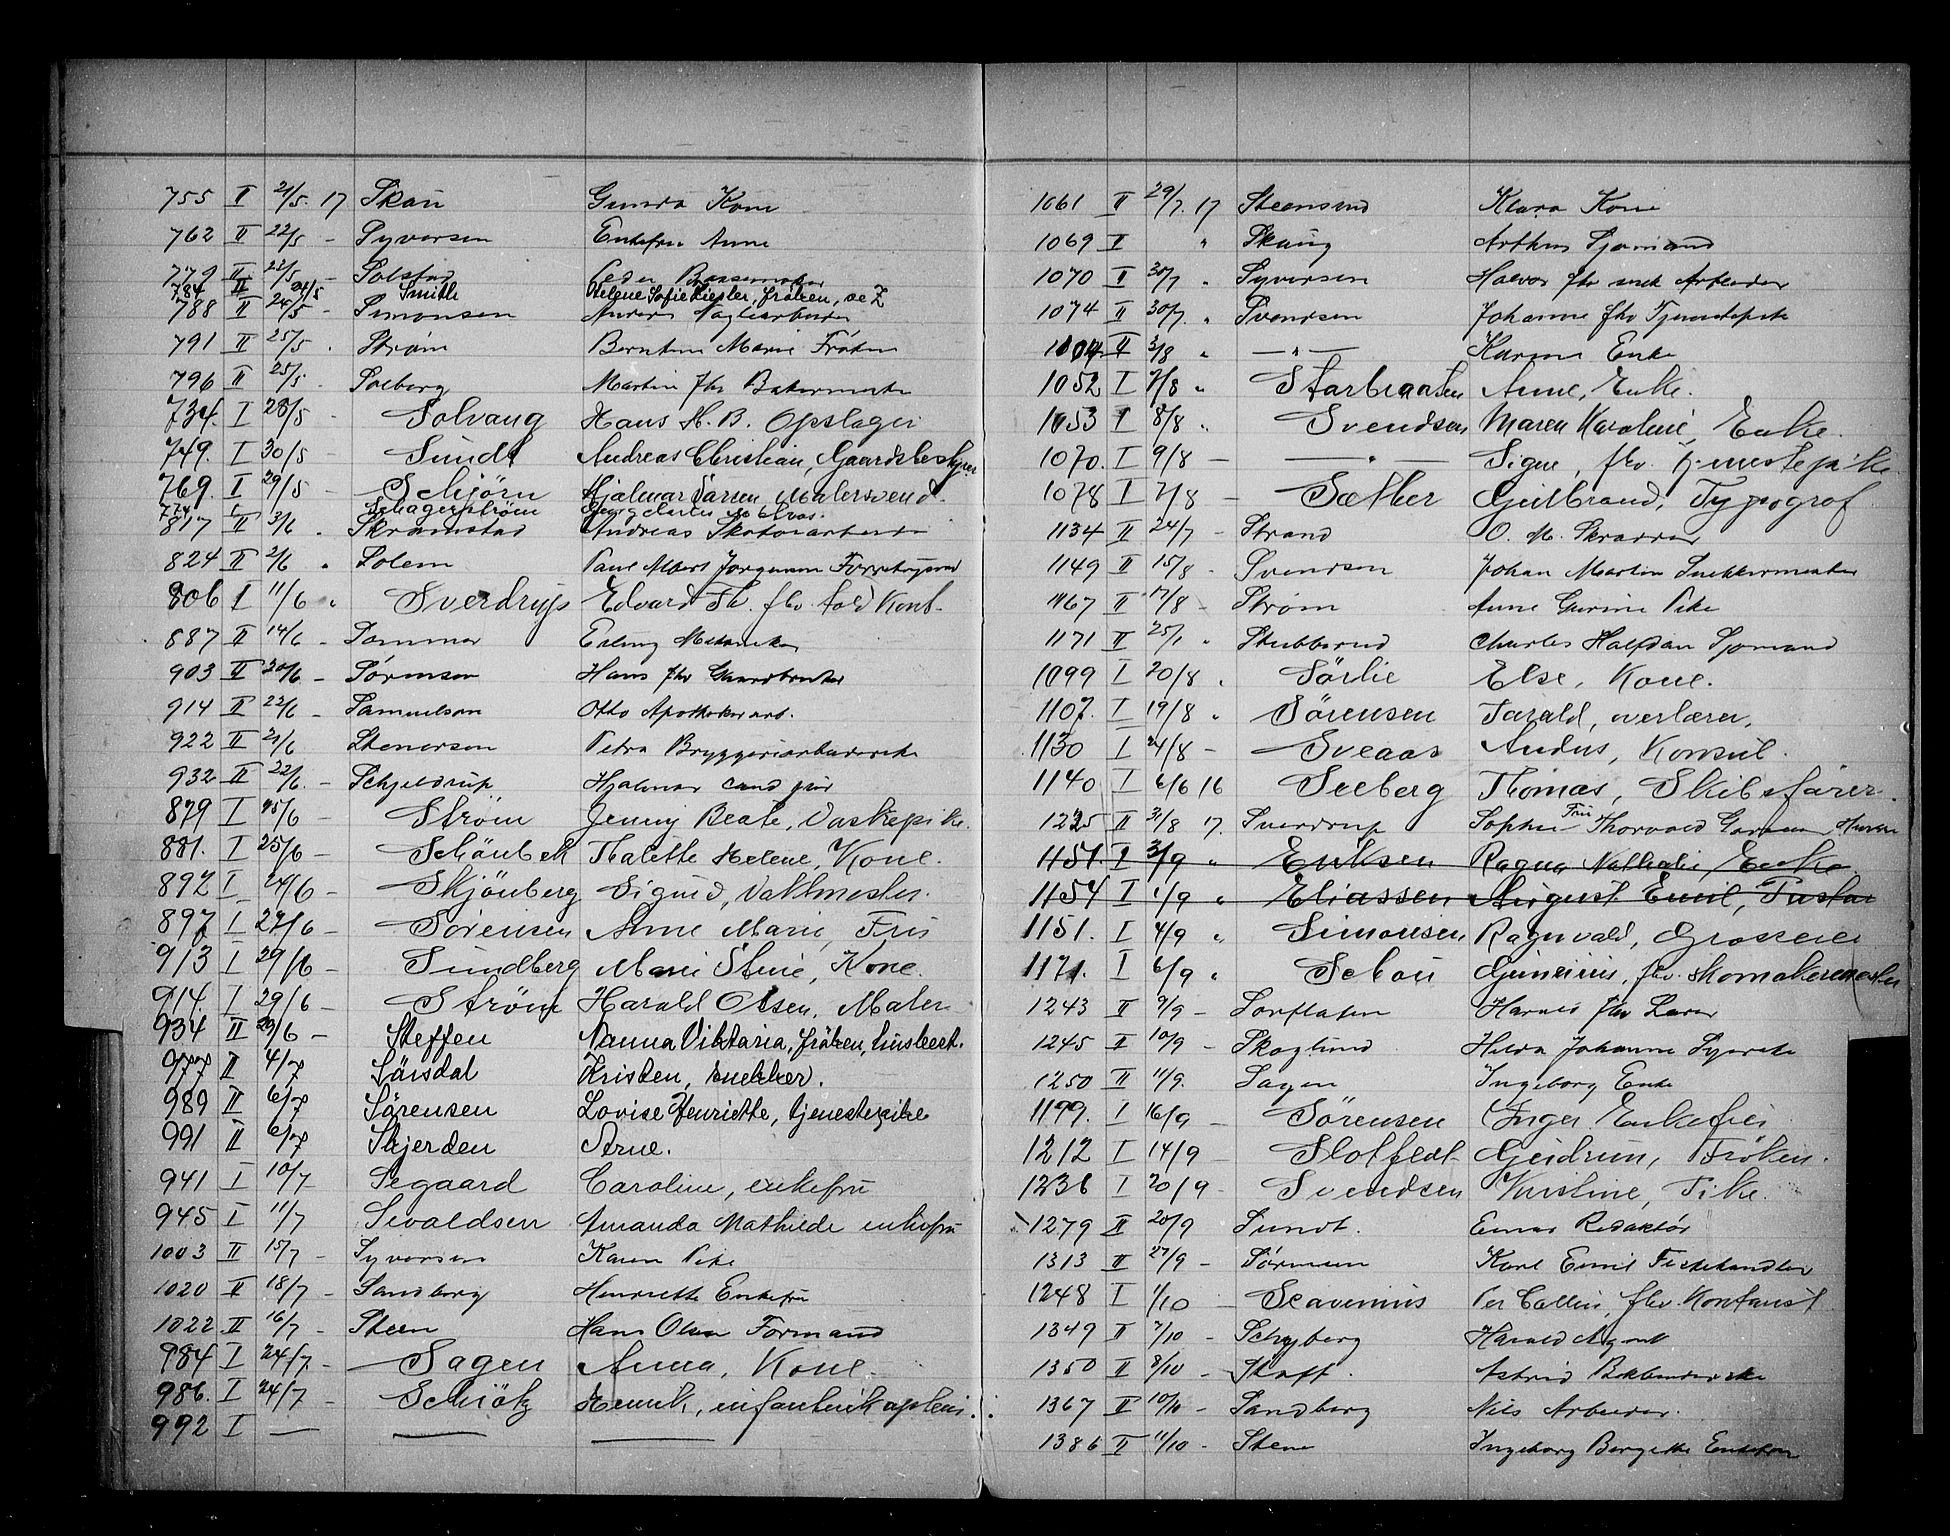 755 II 21/5. 17 Skau Gunda Kone
762 II 22/5 - Syversen Enkefru Anne
779 II 22/5 - Solstad Peder Bøssemaker
784 II 24/5 Smith Helene Sofie Ziegler, frøken, se Z
788 II 24/5 - Simonsen Anders Maglearbeider
791 II 25/5 . Strøm Berntine Marie Frøken
796 II 25/5 . Solberg Martin fhv Bakermester
734. I 28/5 - Solvang Hans H. B. Opslager
749. I 30/5 - Sundt Andreas Christian, Gaardsbestyrer
769. I 29/5 - Schjörn Hjalmar Larsen, Malersvend.
774 I Schagerstrøm
817 II 3/6 . Skramstad Andreas Skotøiarbeider
824 II 2/6 " Solem Paul Albert Jørgensen
806 I 11/6 " Sverdrup Edvard Th. fhv. told Kont.
887 II 14/6 - Sommer Erling Mekaniker
903 II 20/6 - Sørensen Hans fhv Gaardbruker
914 II 22/6 - Samuelsen Otto Apothekerass.
922 II 21/6 Stenersen Petra Bryggeriarbeiderske
932 II 22/6. - Schjeldrup Hjalmar cand jur
879 I 25/6 - Strøm Jenny Beate, Vaskepike.
881. I 25/6 - Schönbeck Thalette Helene, Kone.
892 I 24/6 - Skjönberg Sigurd, Vaktmester.
897 I 27/6 - Sörensen Anne Marie, Fru
913 I 29/6 - Sundberg Marie Stine, Kone.
914. I 29/6 - Strøm Harald Olsen, Maler
934 II 29/6 - Steffen Nanna Viktoria, frøken,
977 II 4/7 Sörsdal Kristen, snekker.
989 II 6/7 Sörensen Lovise Henriette, tjenestepike
991 II 6/7 Skjerden Arne.
941 I 10/7 Segaard Caroline, enkefru
945 I 11/7 Sivaldsen Amanda Mathilde enkefru
1003 II 15/7 - Syversen Karen Pike
1020 II 18/7 - Sandberg Henriette Enkefru
1022 II 16/7 - Steen Hans Olsen Formand
984 I 24/7 - Sagen Anna, Kone.
986. I 24/7 - Schiötz Henrik, infanterikaptein.
992 I — — —
1061 II 29/7. 17 Steensrud Klara Kone
1069 II " Skaug Arthur Sjømand
1070 II 30/7 " Syversen Halvor fhv mek Arbeider
1074 II 30/7. " Svendsen Johanne fhv Tjenestepike
1104 II 3/8 " — " — Karen Enke
1052 I 7/8 " Starbraaten Anne, Enke.
1053 I 8/8 " Svendsen Maren Karoline, Enke.
1070. I 9/8 — — " — Signe, fhv. tjenestepike
1078 I 7/8 - Sæther Gulbrand, Typograf
1134 II 24/7 - Strand O. M. Skrædder
1149 II 15/8 - Svendsen Johan Martin Snekkermester
1167 II 17/8 - Strøm Anne Gurine Pike
1171 II 25/1 " Stubberud Charles Halfdan Sjømand
1099 I 20/8 " Sörlie Else, Kone.
1107. I 19/8 " Sörensen Tarald, overlærer.
1130 I 24/8 - Sveaas Andus, Konsul.
1140 I 6/6 16 Seeberg Thomas, Skibsfører.
1225 II 31/8 17. Sverdrup Sophie Fru Thorvald
1151. I 3/9 " Eriksen Ragna Nathalie, Enke
1154 I 1/9 " Eliassen August Emil,
1151. I 4/9 " Simonsen Ragnvald, Grosserer
1171. I 6/9 " Schou Gunerius, fhv. skomakermester
1243 II 9/9 - Sorflaten Harald fhv Lærer
1245 II 10/9 - Skoglund Hilda Johanne Syerske
1250 II 11/9. Sagen Ingeborg Enke
1199. I 16/9 - Sörensen Inger Enkefru
1212 I 14/9 - Slotfeldt Gudrun, Frøken.
1236 I 20/9 - Svendsen Kirstine, Pike.
1279 II 20/9 Sundt. Einar Redaktør
1313 II 27/9 - Sörensen Karl Emil Fiskehandler
1248 I 1/10 - Scavenius Per Collin, fhv. Kontorist
1349 II 7/10 - Schyberg Harald Agent
1350 II 8/10 - Skaft. Astrid Bokbinderske
1367 II 10/10 - Sandberg Nils Arbeider.
1386 II 11/10 - Stene Ingeborg Bergitte Enkefru